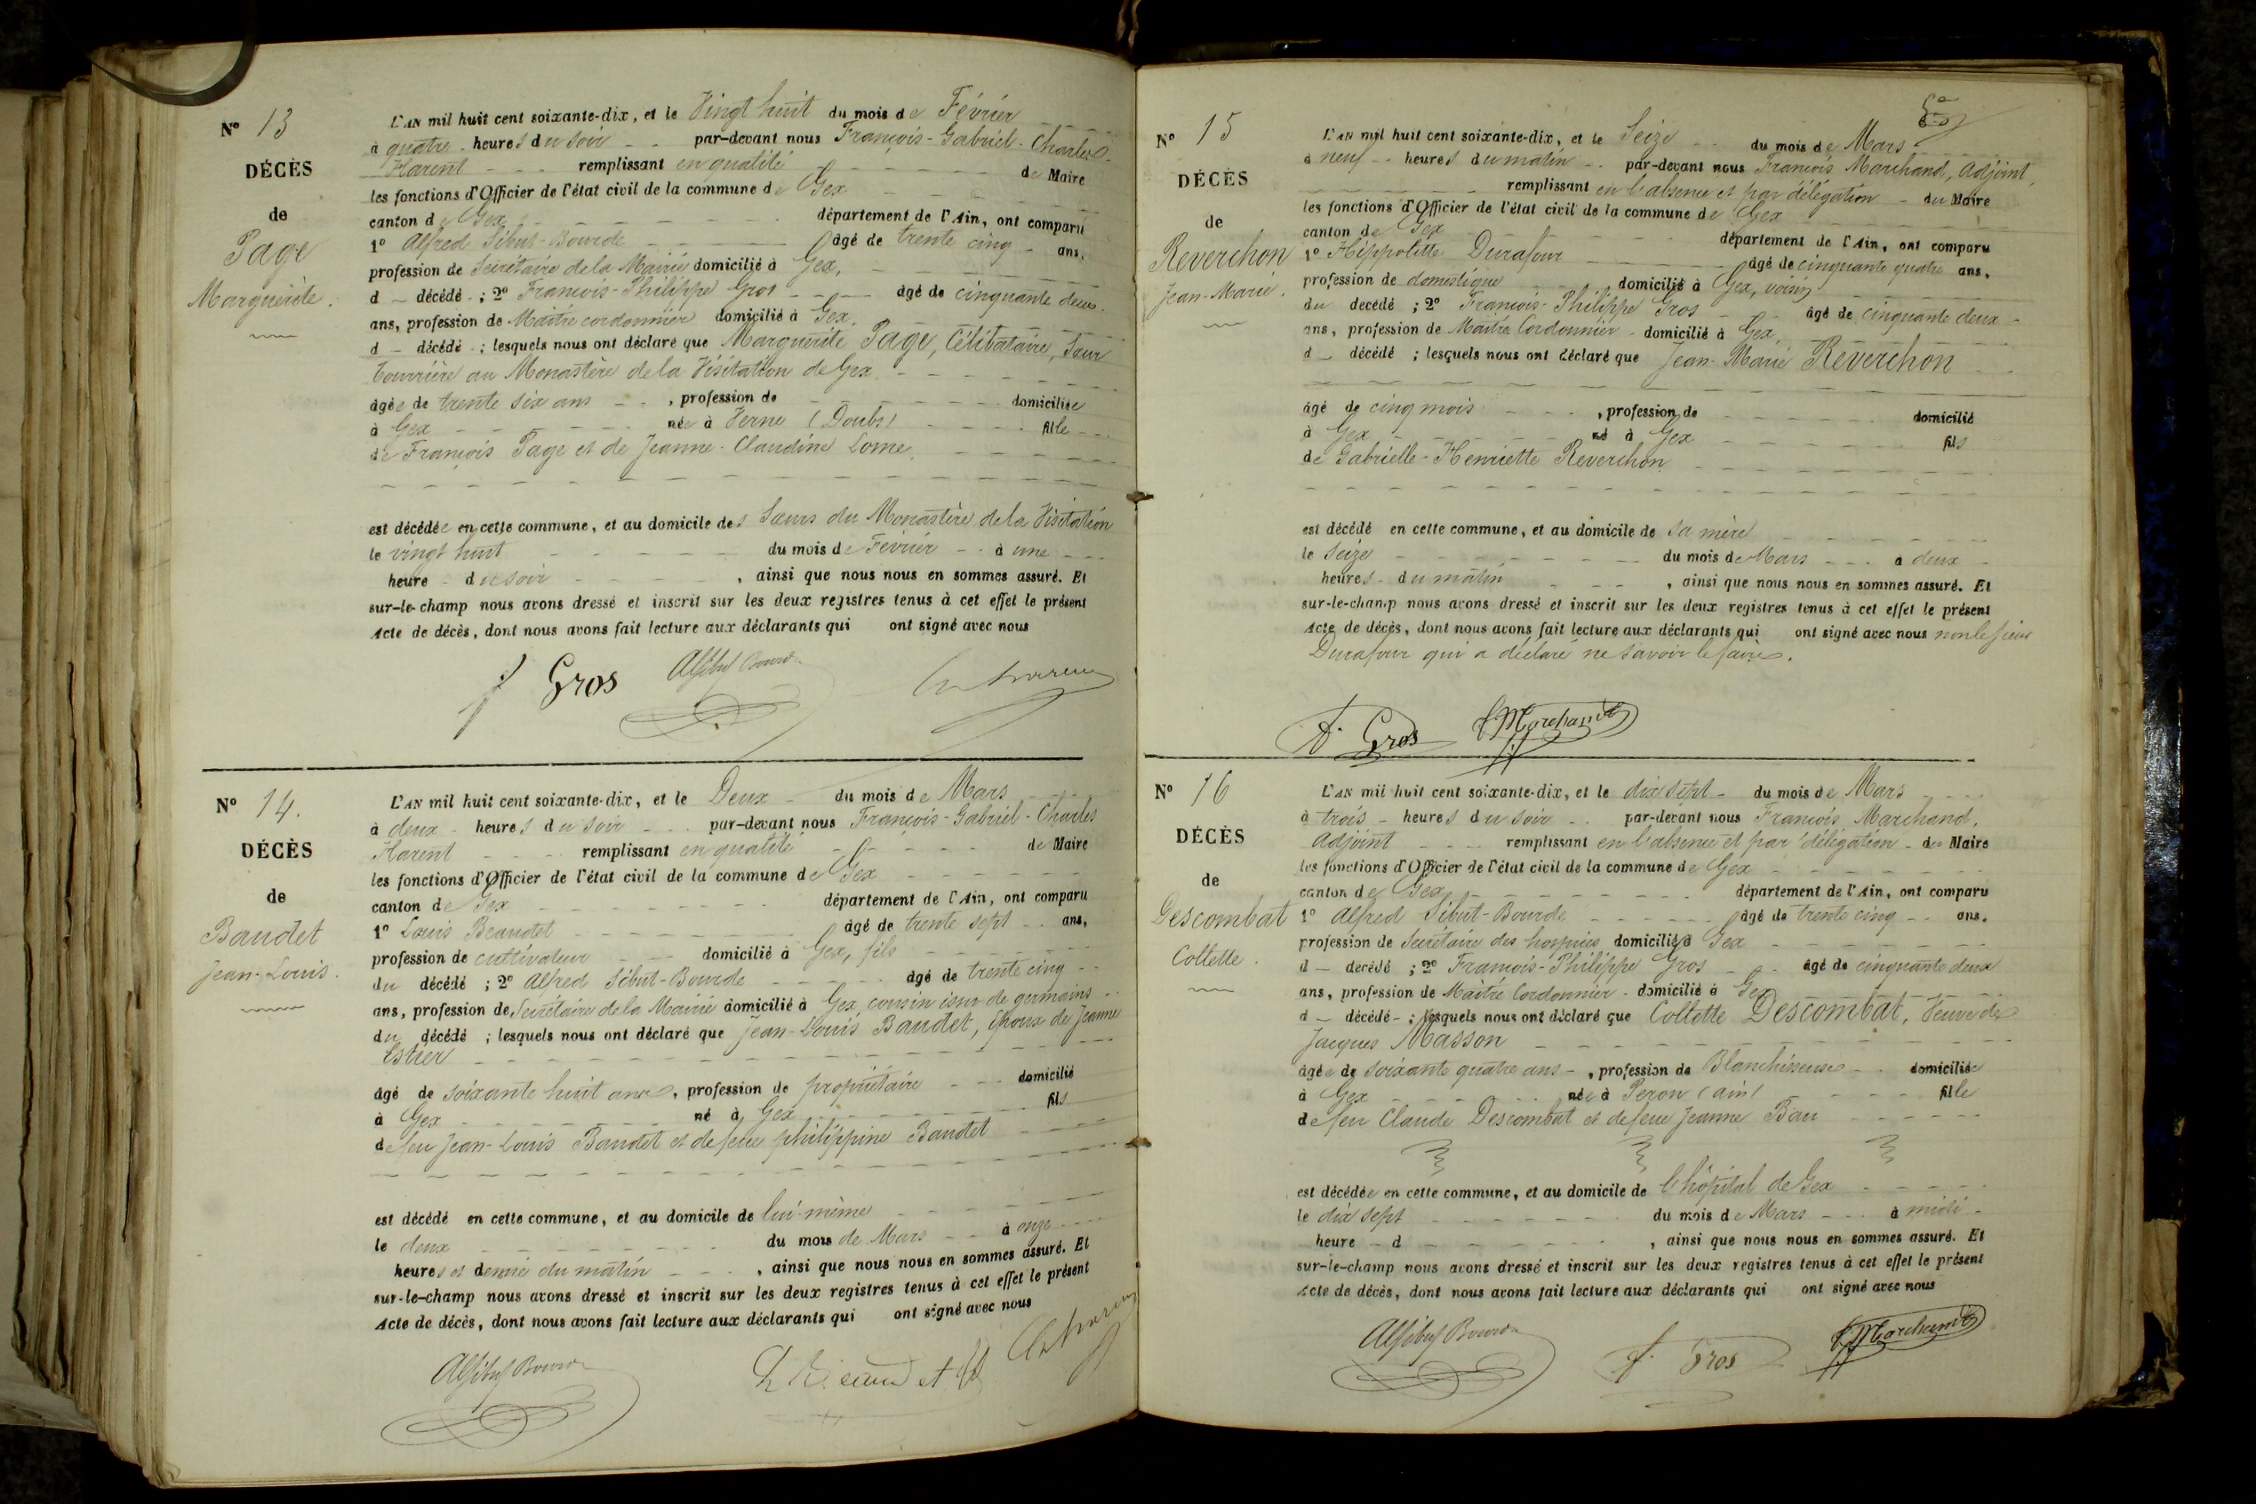 Nº 13
DÉCÈS
de
Page
Marguerite.
L'AN mil huit cent soixante-dix, et le Vingt huit du mois de Février
à quatre heures du soir par-devant nous François-Gabriel-Charles
Harent remplissant en qualité de Maire
les fonctions d'Officier de l'état civil de la commune de Gex
canton de Gex département de l'Ain, ont comparu
1º Alfred Sibut-Bourde âgé de trente cinq ans,
profession de Secrétaire de la Mairie domicilié à Gex,
d décédé ; 2º François-Philippe Gros âgé de cinquante deux
ans, profession de Maître cordonnier domicilié à Gex,
d décédé ; lesquels nous ont déclaré que Marguerite Page, Célibataire, Sœur
tourrière au Monastère de la Visitation de Gex
âgée de trente six ans , profession de domiciliée
à Gex née à Verne (Doubs) fille
de François Page et de Jeanne-Claudine Lome
est décédée en cette commune, et au domicile des Sœurs du Monastère de la Visitation
le vingt huit du mois de Février à une
heure du soir , ainsi que nous nous en sommes assuré. Et
sur-le-champ nous avons dressé et inscrit sur les deux registres tenus à cet effet le présent
Acte de décès, dont nous avons fait lecture aux déclarants qui ont signé avec nous
f Gros Alf Sibut Bourde Ch Harent
Nº 14.
DÉCÈS
de
Baudet
Jean-Louis.
L'AN mil huit cent soixante-dix, et le Deux du mois de Mars
à deux heures du soir par-devant nous François-Gabriel-Charles
Harent remplissant en qualité de Maire
les fonctions d'Officier de l'état civil de la commune de Gex
canton de Gex département de l'Ain, ont comparu
1º Louis Beaudet âgé de trente sept ans,
profession de cultivateur domicilié à Gex, fils
du décédé ; 2º Alfred Sibut-Bourde âgé de trente cinq
ans, profession de Secrétaire de la Mairie domicilié à Gex, cousin issu de germains
du décédé ; lesquels nous ont déclaré que Jean-Louis Baudet, Epoux de Jeanne
Estier
âgé de soixante huit ans, profession de propriétaire domicilié
à Gex né à Gex fils
de feu Jean-Louis Baudet et de feue philippine Baudet
est décédé en cette commune, et au domicile de lui-même
le deux du mois de Mars à onze
heures et demie du matin , ainsi que nous nous en sommes assuré. Et
sur-le-champ nous avons dressé et inscrit sur les deux registres tenus à cet effet le présent
Acte de décès, dont nous avons fait lecture aux déclarants qui ont signé avec nous
Alf Sibut Bourde Ch Harent
Nº 15
DÉCÈS
de
Reverchon
Jean-Marie.
L'AN mil huit cent soixante-dix, et le Seize du mois de Mars
à neuf heures du matin par-devant nous François Marchand, Adjoint,
remplissant en l'absence et par délégation du Maire
les fonctions d'Officier de l'état civil de la commune de Gex
canton de Gex département de l'Ain, ont comparu
1º Hippolitte Durafour âgé de cinquante quatre ans,
profession de domestique domicilié à Gex, voisin
du decédé ; 2º François-Philippe Gros âgé de cinquante deux
ans, profession de Maître Cordonnier domicilié à Gex,
d décédé ; lesquels nous ont déclaré que Jean-Marie Reverchon
âgé de cinq mois , profession de domicilié
à Gex né à Gex fils
de Gabrielle-Henriette Reverchon
est décédé en cette commune, et au domicile de sa mère
le Seize du mois de Mars à deux
heures du matin , ainsi que nous nous en sommes assuré. Et
sur-le-champ nous avons dressé et inscrit sur les deux registres tenus à cet effet le présent
Acte de décès, dont nous avons fait lecture aux déclarants qui ont signé avec nous non le sieur
Durafour qui a déclaré ne savoir le faire.
f. Gros f Marchand
Nº 16
DÉCÈS
de
Descombat
Collette.
L'AN mil huit cent soixante-dix, et le dix sept du mois de Mars
à trois heures du soir par-devant nous François Marchand,
Adjoint remplissant en l'absence et par délégation du Maire
les fonctions d'Officier de l'état civil de la commune de Gex
canton de Gex département de l'Ain, ont comparu
1º Alfred Sibut-Bourde âgé de trente cinq ans,
profession de Secrétaire des hospices domicilié à Gex
d decédé ; 2º François-Philippe Gros âgé de cinquante deux
ans, profession de Maître Cordonnier domicilié à Gex
d décédé ; lesquels nous ont déclaré que Collette Descombat, Veuve de
Jacques Masson
âgée de soixante quatre ans , profession de Blanchisseuse domiciliée
à Gex née à Peron (ain) fille
de feu Claude Descombat et de feue Jeanne Bau
est décédée en cette commune, et au domicile de l'hôpital de Gex
le dix sept du mois de Mars à midi
heure d , ainsi que nous nous en sommes assuré. Et
sur-le-champ nous avons dressé et inscrit sur les deux registres tenus à cet effet le présent
Acte de décès, dont nous avons fait lecture aux déclarants qui ont signé avec nous
Alf Sibut Bourde f. Gros f Marchand